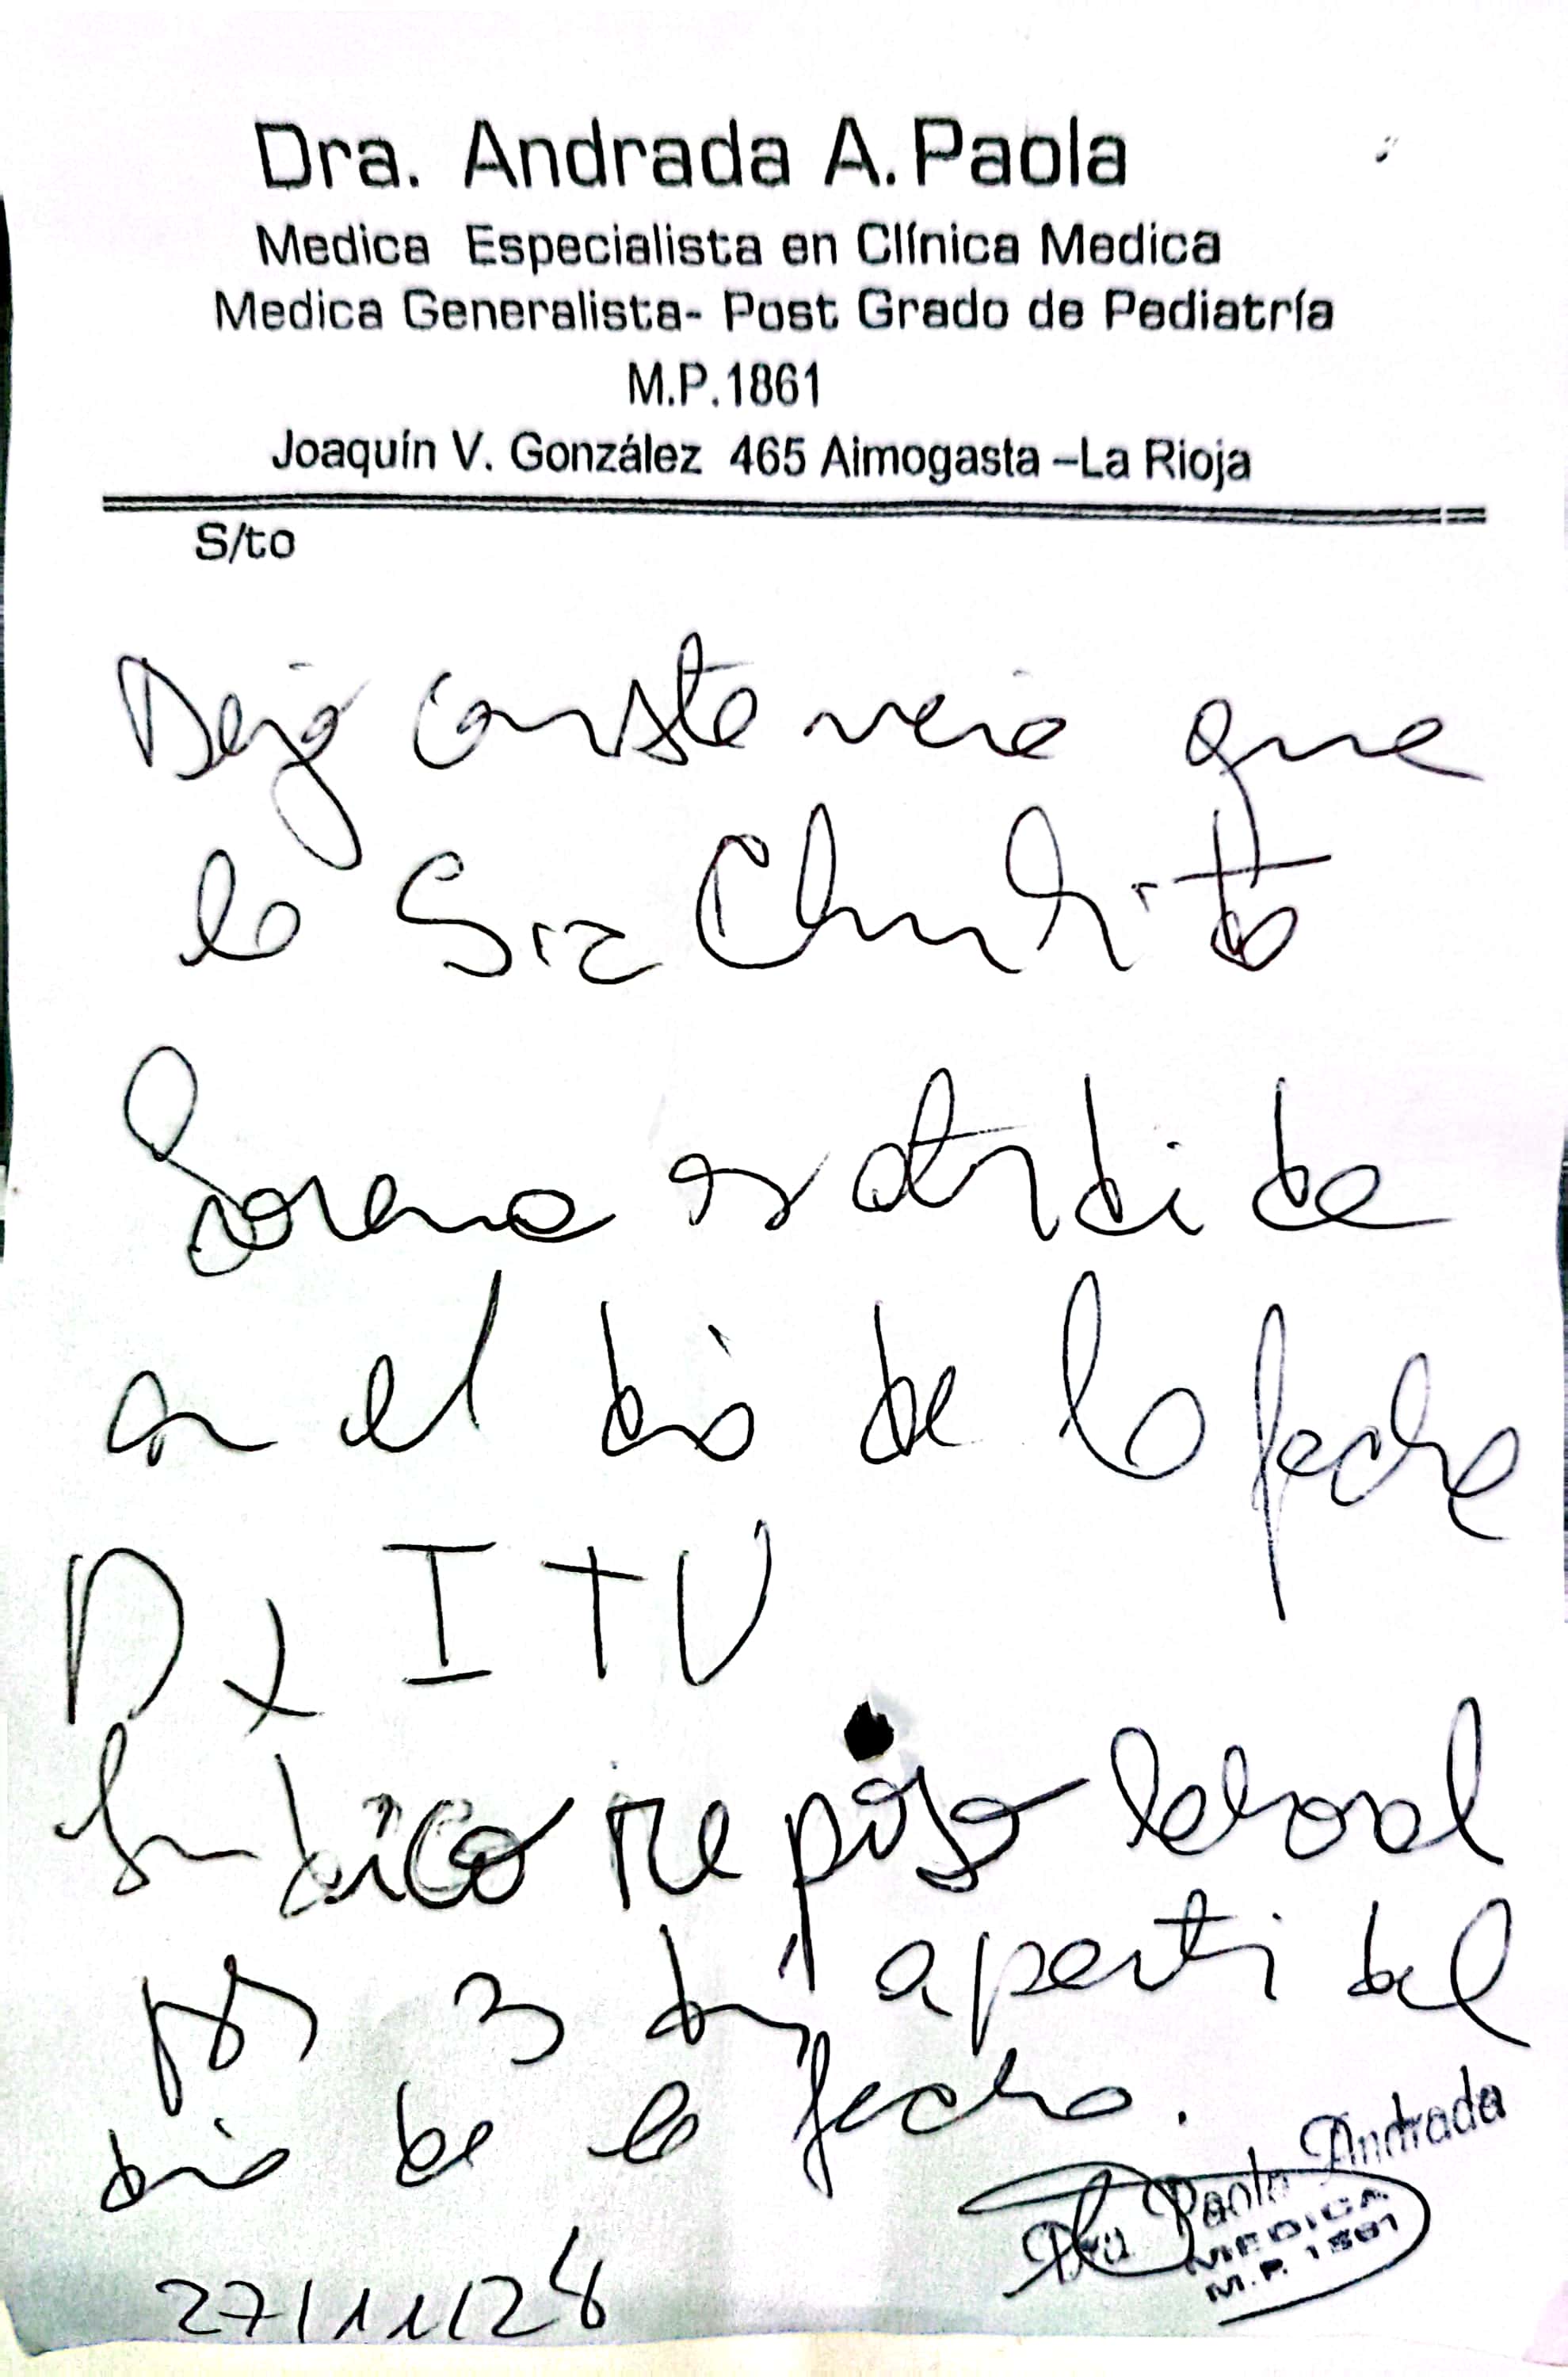 Dra. Andrada A. Paola
Medica Especialista en Clínica Medica
Medica Generalista- Post Grado de Pediatría
M.P.1861
Joaquín V. González 465 Aimogasta –La Rioja
S/to
Dejo constancia que
la Sra
Lorena es atendida
en el día de la fecha
Dx ITU
Indico reposo laboral
por 3 días a partir del
día de la fecha.
Dra Paola Andrada
MEDICA
M.P. 1861
27/11/2